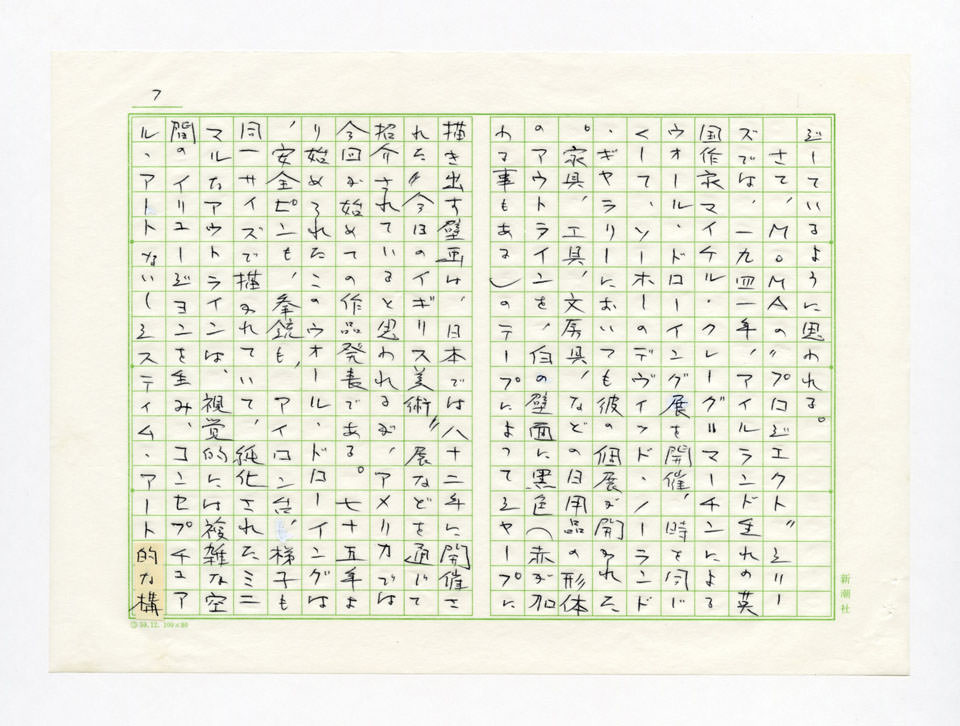 7
じているように思われる。
さて、MoMAの〝プロジェクト〟シリー
ズでは、一九四一年、アイルランド生れの英
国作家マイケル・クレーグ＝マーチンによる
ウォール・ドローイング展を開催、時を同じ
くして、ソーホーのデヴィッド・ノーランド
・ギャラリーにおいても彼の個展が開かれた
。家具、工具、文房具、などの日用品の形体
のアウトラインを、白の壁面に黒色（赤が加
わる事もある）のテープによってシャープに
描き出す壁画は、日本では八十二年に開催さ
れた〝今日のイギリス美術〟展などを通じて
紹介されていると思われるが、アメリカでは
今回が始めての作品発表である。七十五年よ
り始められたこのウォール・ドローイングは
、安全ピンも、拳銃も、アイロン台、梯子も
同一サイズで描かれていて、純化されたミニ
マルなアウトラインは、視覚的には複雑な空
間のイリュージョンを生み、コンセプチュア
ル・アートないしシスティム・アート的な構
新潮社
59.12. 100×80